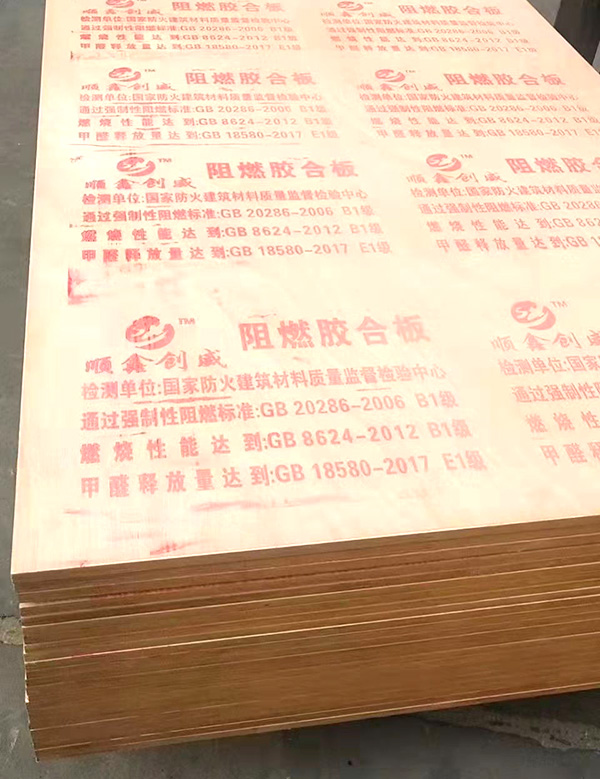 顺鑫创威
燃烧性能达到:GB 8624-2012 B1级
甲醛释放量达到:GB 18580-2017 E1级
检测单位:国家防火建筑材料质量监督检验中心
通过强制性阻燃标准:GB 20286-2006 B1级
TM 阻燃胶合板
顺鑫创威
检测单位:国家防火建筑材料质量监督检验中心
通过强制性阻燃标准:GB 20286-2006 B1级
燃烧性能达到:GB 8624-2012 B1级
甲醛释放量达到:GB 18580-2017 E1级
TM 阻燃胶合板
TM 阻燃胶合板
顺鑫创威
检测单位:国家防火建筑材料质量监督检验中心
通过强制性阻燃标准:GB 20286-2006 B1级
燃烧性能达到:GB 8624-2012 B1级
甲醛释放量达到:GB 18580-2017 E1级
TM 阻燃胶合
顺鑫创威
检测单位:国家防火建筑材料质
通过强制性阻燃标准:GB 20286
燃烧性能达到:GB 862
甲醛释放量达到:GB 18
TM 阻燃胶合板
顺鑫创威
检测单位:国家防火建筑材料质量监督检验中心
通过强制性阻燃标准:GB 20286-2006 B1级
燃烧性能达到:GB 8624-2012 B1级
甲醛释放量达到:GB 18580-2017 E1级
TM
顺鑫创威
检测单位:国家
通过强制性
燃烧
甲醛